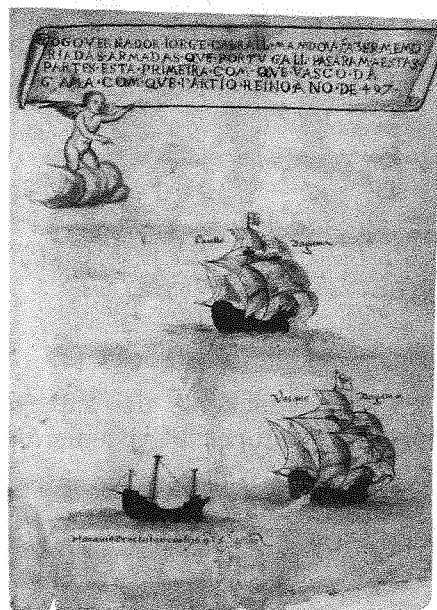 OGOVERNADOR IORGE CABRALL MANDOV FAZER MEMO
RIA DAS ARMADAS QVE PORTVGALL PASARAM A ESTAS
PARTES ESTA PRIMEIRA COM QVE VASCO DA
GAMA COM QVE PARTIO REINO ANO DE 497
Paullo Dagama
Vasquo Dagama